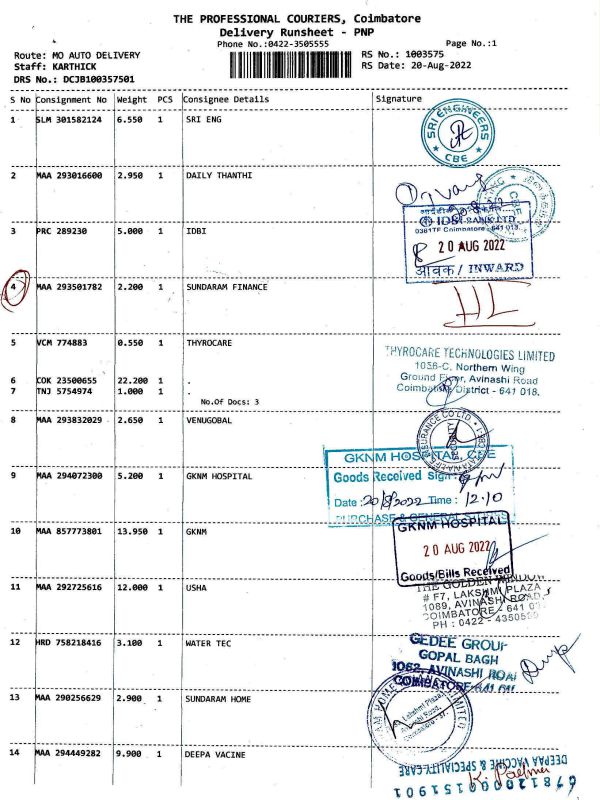 THE PROFESSIONAL COURIERS, Coimbatore
Delivery Runsheet - PNP
Phone No.:0422-3505555
Page No.:1
Route: MO AUTO DELIVERY
RS No.: 1003575
Staff: KARTHICK
RS Date: 20-Aug-2022
DRS No.: DCJB100357501
S No Consignment No Weight PCS Consignee Details Signature
1 SLM 301582124 6.550 1 SRI ENG
SRI ENGINEERS
CBE
2 MAA 293016600 2.950 1 DAILY THANTHI
3 PRC 289230 5.000 1 IDBI
IDBI BANK LTD
0361TF Coimbatore - 641 018.
20 AUG 2022
आवक / INWARD
4 MAA 293501782 2.200 1 SUNDARAM FINANCE
5 VCM 774883 0.550 1 THYROCARE
THYROCARE TECHNOLOGIES LIMITED
1056-C, Northern Wing
Ground Floor, Avinashi Road
Coimbatore District - 641 018.
6 COK 23500655 22.200 1 .
7 TNJ 5754974 1.000 1 .
No.Of Docs: 3
8 MAA 293832029 2.650 1 VENUGOBAL
9 MAA 294072300 5.200 1 GKNM HOSPITAL
GKNM HOSPITAL, CBE
Goods Received Sign
Date : 20/8/2022 Time : 12.10
PURCHASE & GENERAL STORES
10 MAA 857773801 13.950 1 GKNM
GKNM HOSPITAL
20 AUG 2022
Goods/Bills Received
11 MAA 292725616 12.000 1 USHA
THE GOLDEN WINDOW
# F7, LAKSHMI PLAZA
1089, AVINASHI ROAD,
COIMBATORE - 641
PH : 0422 - 4350555
12 HRD 758218416 3.100 1 WATER TEC
GEDEE GROUP
GOPAL BAGH
1062, AVINASHI ROAD
COIMBATORE-641
13 MAA 290256629 2.900 1 SUNDARAM HOME
Lakshmi Plaza,
Avinashi Road,
Coimbatore
14 MAA 294449282 9.900 1 DEEPA VACINE
DEEPAA VACCINE & SPECIALITY CARE